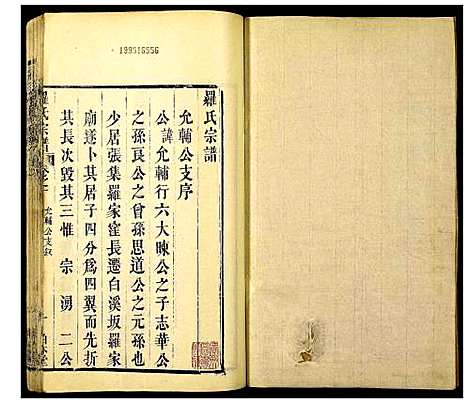 199516556
羅氏宗譜
允輔公支序
公諱允輔行六大暕公之子志華公
之孫良公之曾孫思道公之元孫也
少居張集羅家窪長遷白溪坂羅家
廟遂卜其居子四分爲四翼而先折
其長次毀其三惟宗湧二公
羅氏宗譜
允輔公支敘